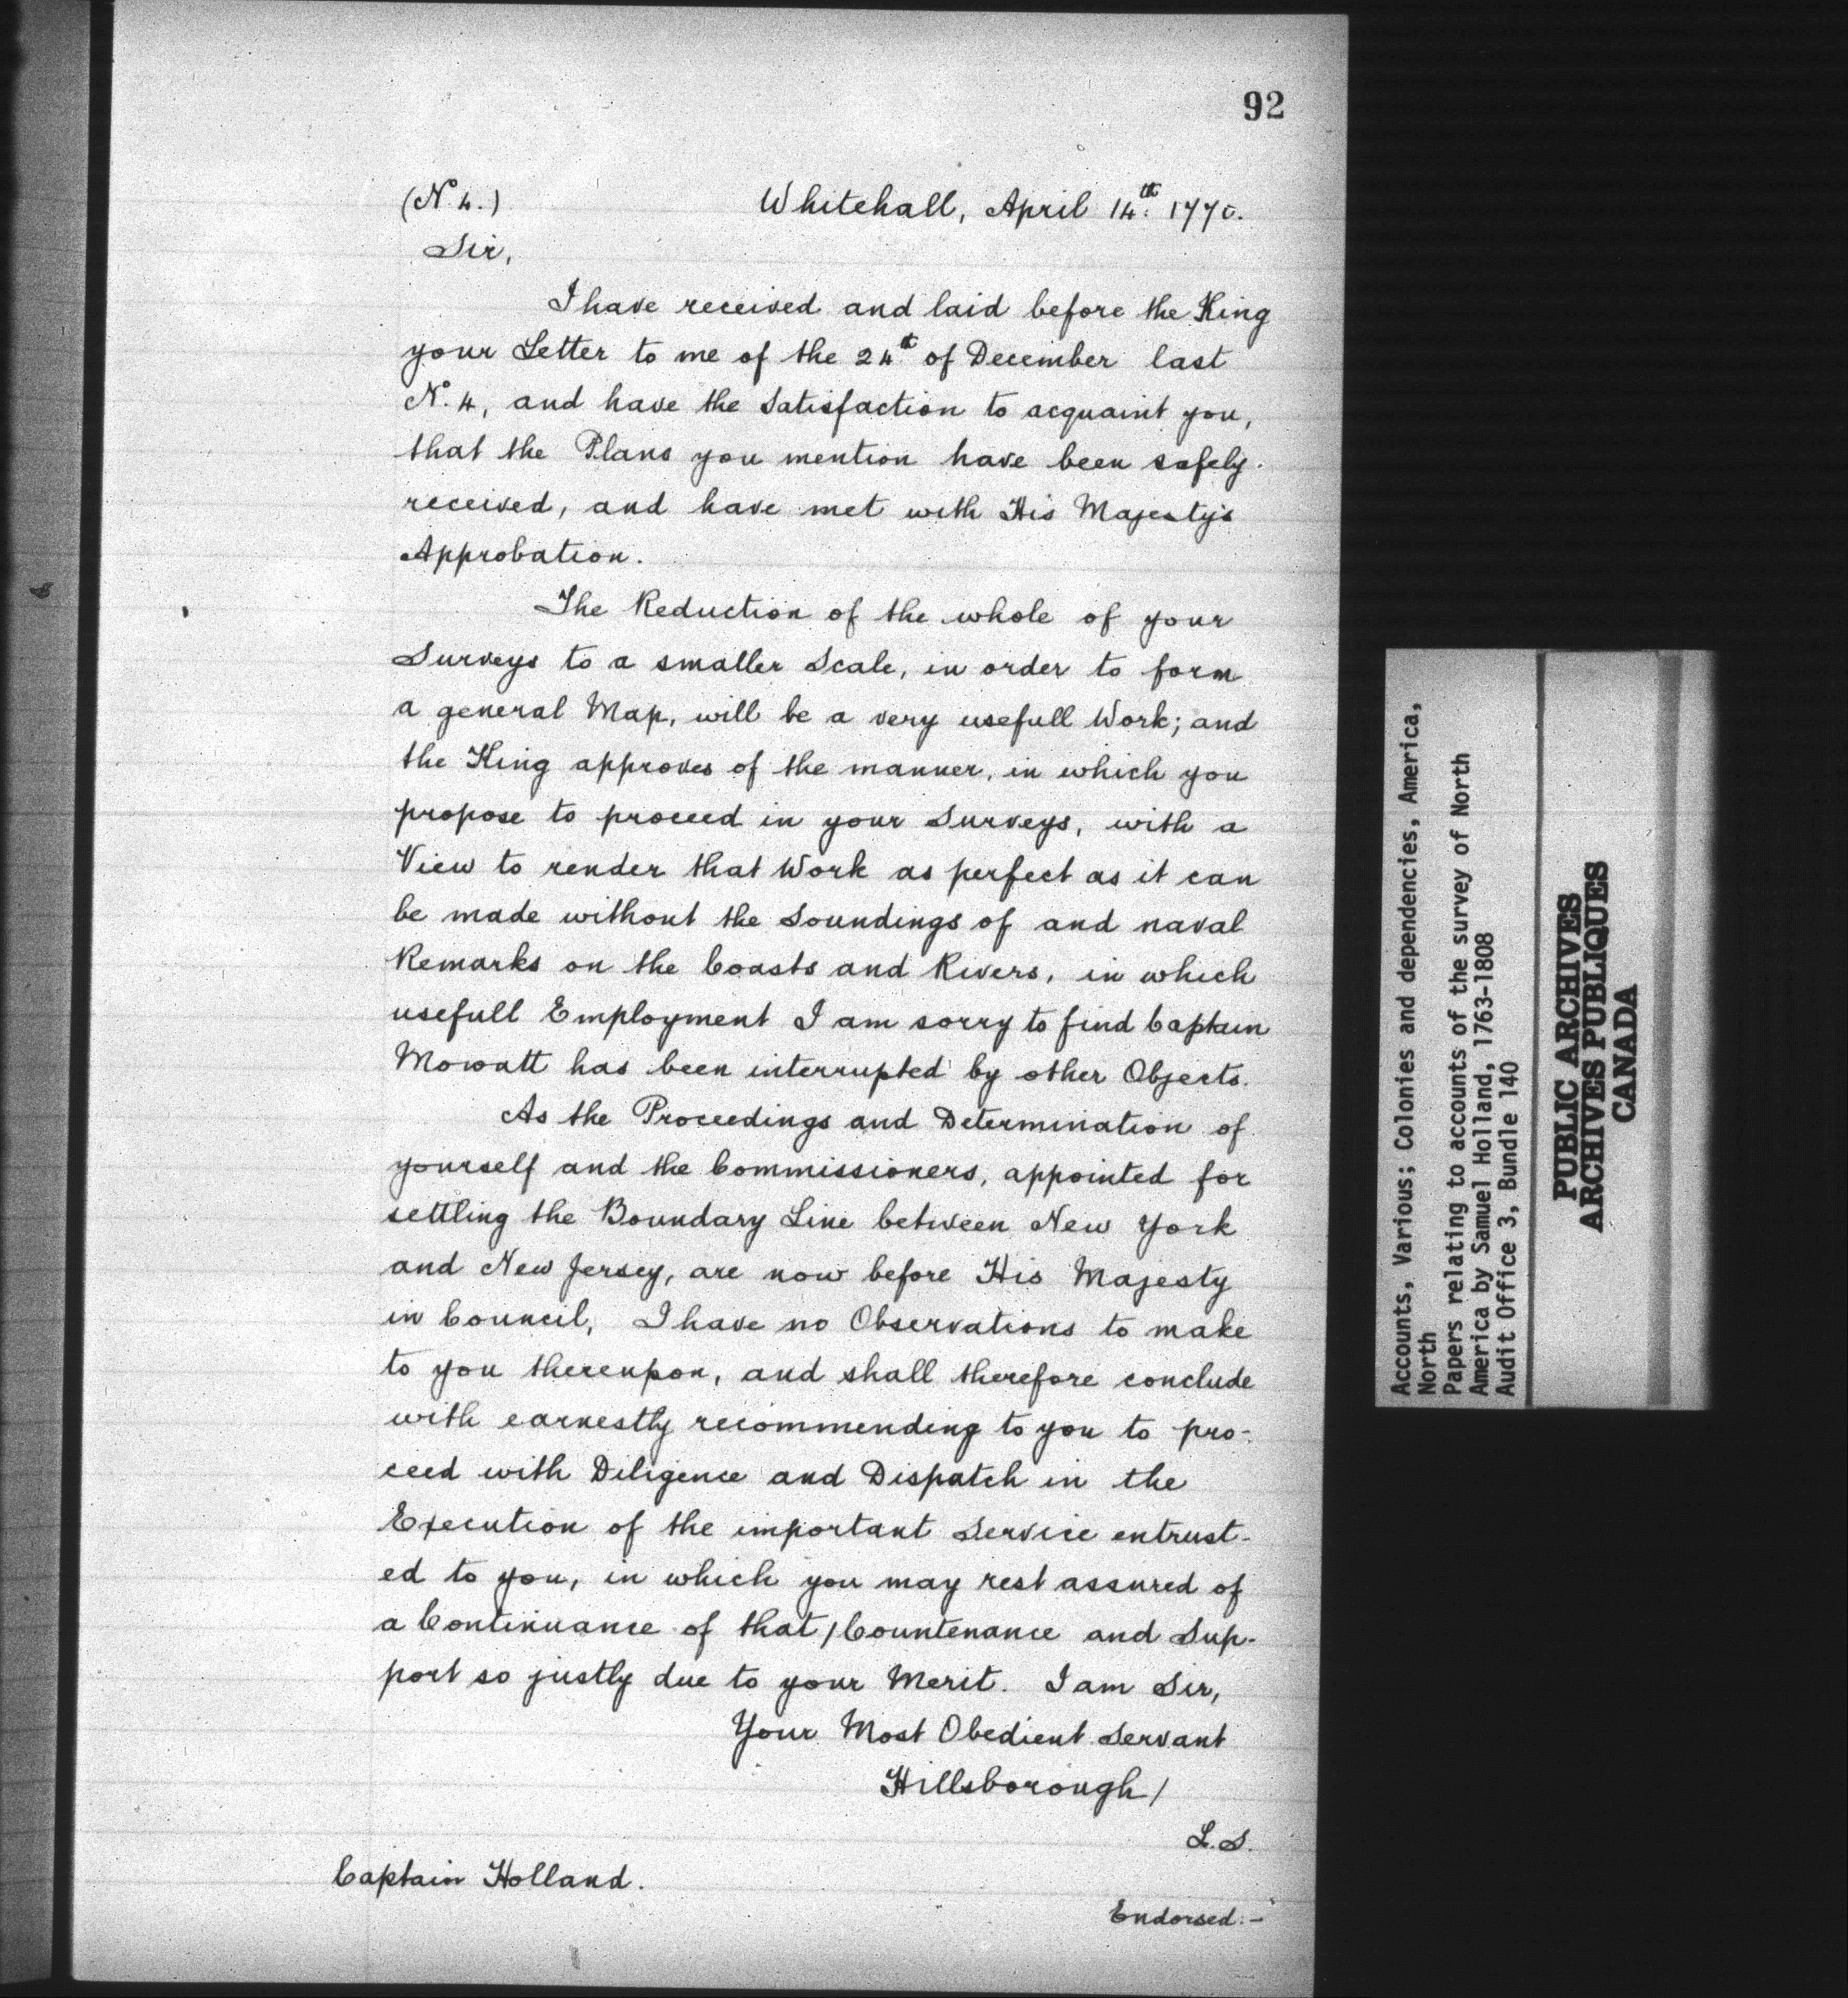 92
(No 4.) Whitehall, April 14th. 1770.
Sir,
I have received and laid before the King
your Letter to me of the 24th of December last
No. 4, and have the Satisfaction to acquaint you,
that the Plans you mention have been safely
received, and have met with His Majesty's
Approbation.
The Reduction of the whole of your
Surveys to a smaller Scale, in order to form
a general Map, will be a very usefull Work; and
the King approves of the manner, in which you
propose to proceed in your Surveys, with a
View to render that Work as perfect as it can
be made without the Soundings of and naval
Remarks on the Coasts and Rivers, in which
usefull Employment I am sorry to find Captain
Mowatt has been interrupted by other Objects.
As the Proceedings and Determination of
yourself and the Commissioners, appointed for
settling the Boundary Line between New York
and New Jersey, are now before His Majesty
in Council, I have no Observations to make
to you thereupon, and shall therefore conclude
with earnestly recommending to you to pro-
ceed with Diligence and Dispatch in the
Execution of the important Service entrust-
ed to you, in which you may rest assured of
a Continuance of that / Countenance and Sup-
port so justly due to your Merit. I am Sir,
Your Most Obedient Servant
Hillsborough /
L.S.
Captain Holland.
Endorsed:-
Accounts, Various; Colonies and dependencies, America,
North
Papers relating to accounts of the survey of North
America by Samuel Holland, 1763-1808
Audit Office 3, Bundle 140
PUBLIC ARCHIVES
ARCHIVES PUBLIQUES
CANADA